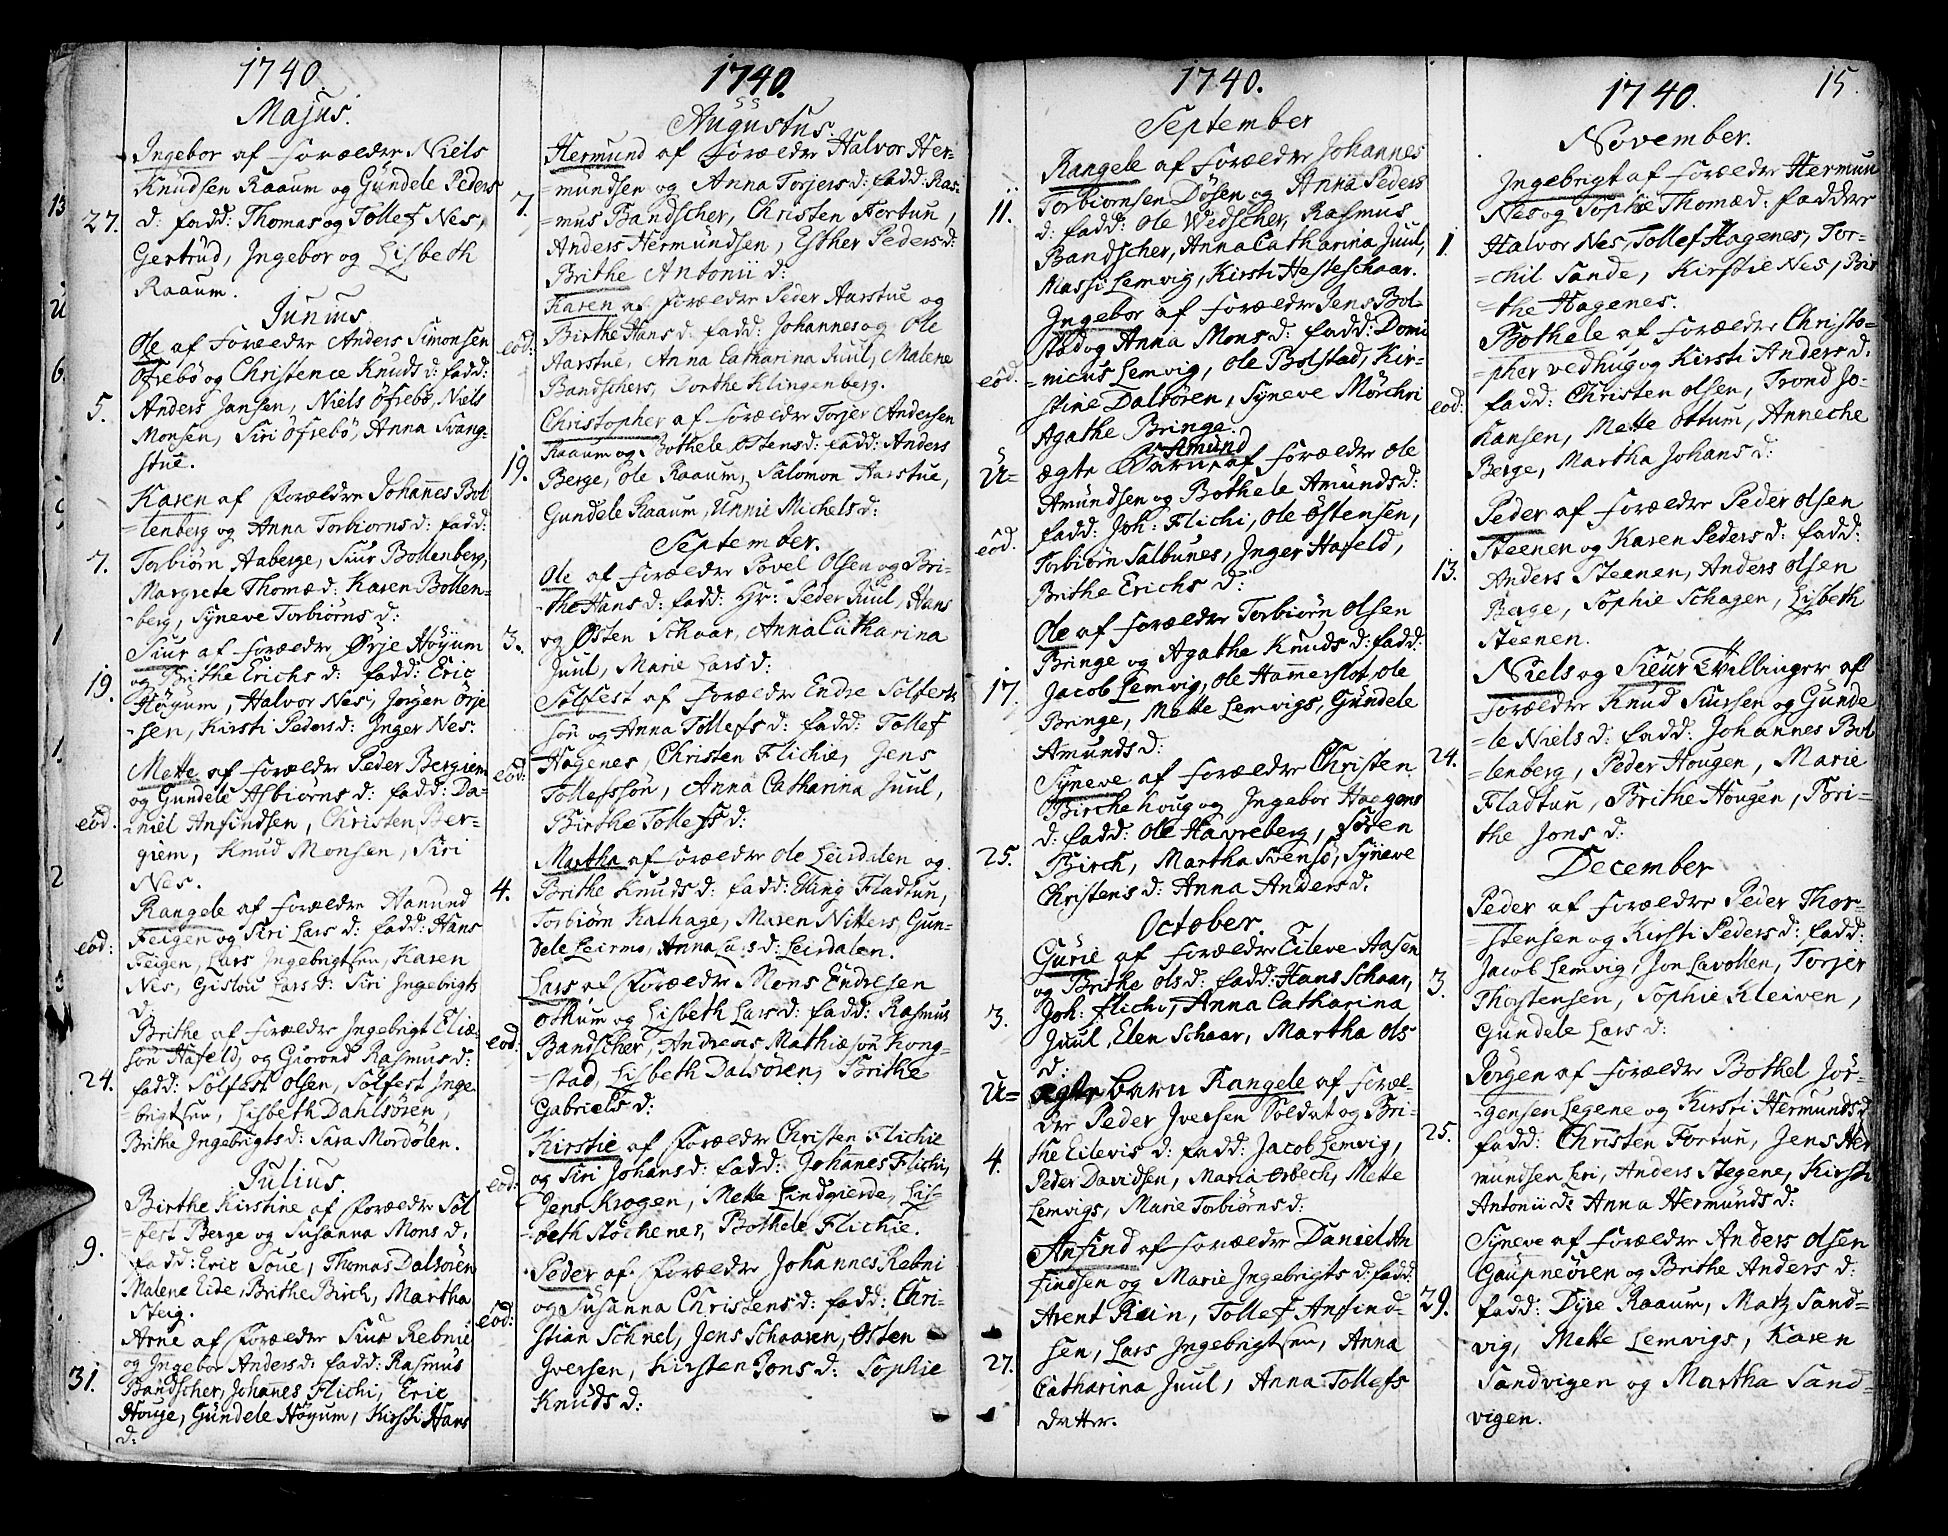 1740
Majus.
Ingebor af Forældre Niels
Knudsen Raaum og Gundele Peders
27. d: fadd: Thomas og Tollef Nes,
Gertrud, Ingebor og Lisbeth
Raaum.
Junius.
Ole af Forældre Anders Simonsen
Ofrebø og Christence Knuds d: fadd:
5. Anders Jansen, Niels Ofrebø, Niels
Monsen, Siri Ofrebø, Anna Svang-
stue.
Karen af Forældre Johannes Bol
=lenberg og Anna Torbiørns d: fadd:
7. Torbiørn Aaberge, Siur Bollenberg,
Margrete Thomæ d: Karen Bollen-
-berg, Syneve Torbiørns d:
Siur af Forældre Ørje Høyum
og Brithe Erichs d: fadd: Eric
19. Høyum, Halvor Nes, Jørgen Ørje
-sen, Kirsti Peders d: Inger Nes.
Mette af Forældre Peder Bergiem
og Gundele Asbiørns d: fadd: Da-
eod. niel Anfindsen, Christen Ber-
giem, Knud Monsen, Siri
Nes.
Rangele af Forældre Aamund
Feigen og Siri Lars d: fadd: Hans
eod: Feigen, Lars Ingebrigtsen, Karen
Nes, Gislou Lars d: Siri Ingebrigts
d:
Brithe af Forældre Ingebrigt Eliæ-
søn Hafeld, og Giorond Rasmus d:
24. fadd: Solfest Olsen, Solfest Inge
-brigtsen, Lisbeth Dahlsøren,
Brithe Ingebrigts d: Sara Mordølen.
Julius
Birthe Kirstine af Forældre Sol
-fest Berge og Susanna Mons d.
9. fadd: Eric Soue, Thomas Dalsøren
Malene Eide, Brithe Birch, Martha
Steig.
Arne af Forældre Siur Rebnie
og Ingebor Anders d: fadd: Rasmus
31. Bandscher, Johannes Flichi, Eric
Houge, Gundele Høyum, Kirsti Hans
d:
1740.
Augustus.
Hermund af Forældre Halvor Her-
=mundsen og Anna Torjers d: fadd: Ras-
7. =mus Bandscher, Christen Fortun,
Anders Hermundsen, Esther Peders d:
Brithe Antonii d:
Karen af Forældre Peder Aarstue og
Birthe Hans d: fadd: Johannes og Ole
eod: Aarstue, Anna Catharina Juul, Malene
Bandschers, Dorthe Klingenberg.
Christopher af Forældre Torjer Andersen
Raaum og Bothele Østens d: fadd: Anders
19. Berge, Ole Raaum, Salomon Aarstue,
Gundele Raaum, Unnie Michels d:
September.
Ole af Forældre Povel Olsen og Bri-
-the Hans d: fadd: Hr: Peder Juul, Hans
3. og Østen Schaar, Anna Catharina
Juul, Marie Lars d:
Solfest af Forældre Endre Solfest
søn og Anna Tollefs d: fadd: Tollef
eod: Hagenes, Christen Flichie, Jens
Tollefssøn, Anna Catharina Juul,
Birthe Tollefs d:
Martha af Forældre Ole Leirdalen og
4. Brithe Knuds d: fadd: Elling Fladtun,
Torbiørn Kalhage, Maren Nitters, Gun-
dele Leirmo, Anna Lars d: Leirdalen.
Lars af Forældre Mons Endresen
Othum og Lisbeth Lars d: fadd: Rasmus
eod: Bandscher, Andreas Mathiæsøn Kong-
=stad, Lisbeth Dalsøren, Brithe
Gabriels d:
Kirstie af Forældre Christen Flichie
og Siri Johans d: fadd: Johannes Flichi,
eod: Jens Krogen, Mette Lindgierde, Lis-
-beth Støchenes, Bothele Flichie.
Peder af Forældre Johannes Rebni
og Susanna Christens d: fadd: Chri-
eod: stian Schnel, Jens Schaaren, Østen
Iversen, Kirsten Jons d: Sophie
Knuds d:
1740.
September
Rangele af Forældre Johannes
Torbiornsen Døsen og Anna Peders
11. d: fadd: Ole Wedscher, Rasmus
Bandscher, Anna Catharina Juul,
Massi Lemvig, Kirsti Hesteschaar.
Ingebor af Forældre Jens Bol-
stad og Anna Mons d: fadd: Domi
eod. =nicus Lemvig, Ole Bolstad, Kir-
stine Dalsøren, Syneve Mørchri
Agathe Bringe.
U= ægte Barn Amund af Forældre Ole
Amundsen og Bothele Amunds d:
eod. fadd: Joh: Flichi, Ole Østensen,
Torbiørn Salbunes, Inger Hafeld,
Brithe Erichs d:
Ole af Forældre Torbiørn Olsen
Bringe og Agathe Knuds d: fadd:
17. Jacob Lemvig, Ole Hamerslot, Ole
Bringe, Mette Lemvigs, Gundele
Amunds d:
Syneve af Forældre Christen
Birche Houg og Ingebor Haagens
d: fadd: Ole Havreberg, Søren
25. Birch, Martha Svensø, Syneve
Christens d: Anna Anders d.
October.
Gurie af Forældre Eileve Aasen
og Brithe Ols d: fadd: Hans Schaar,
3. Joh: Flichi, Anna Catharina
Juul, Elen Schaar, Martha Ols
d:
U= ægte barn Rangele af Foræl-
dre Peder Iversen Soldat og Bri-
4. the Eilevis d: fadd: Jacob Lemvig,
Peder Davidsen, Maria Orbech, Mette
Lemvigs, Marie Torbiørns d:
Anfind af Forældre Daniel An
findsen og Marie Ingebrigts d: fadd:
Arent Rein, Tollef Anfind-
27. sen, Lars Ingebrigtsen, Anna
Catharina Juul, Anna Tollefs
datter.
1740. 15.
November.
Ingebrigt af Forældre Hermun
Nes og Sophie Thomæ d: faddere
1. Halvor Nes, Tollef Hagenes, Tor-
=chil Sande, Kirstie Nes, Bir
=the Hagenes.
Bothele af Forældre Christo-
=pher vedhug og Kirsti Anders d.
eod: fadd: Christen Olsen, Trond Jo-
hansen, Mette Ottum, Anneche
Berge, Martha Johans d:
Peder af Forældre Peder Olsen
Steenen og Karen Peders d: fadd:
13. Anders Steenen, Anders Olsen
Berge, Sophie Schagen, Lisbeth
Steenen.
Niels og Sieur Tvillinger af
Forældre Knud Siursen og Gunde
-le Niels d: fadd: Johannes Bol
24. =lenberg, Peder Hougen, Marie
Fladtun, Brithe Hougen, Bri-
the Jons d:
December
Peder af Forældre Peder Thor-
=stensen og Kirsti Peders d: fadd:
3. Jacob Lemvig, Jon Lavollen, Torjer
Thorstensen, Sophie Kleiven,
Gundele Lars d:
Jørgen af Forældre Bothel Jør-
-gensen Legene og Kirsti Hermunds d
25. fadd: Christen Fortun, Jens Her
mundsen Eri, Anders Stegene, Kirsti
Antonii d: Anna Hermunds d:
Syneve af Forældre Anders Olsen
Gaupneøren og Brithe Anders d:
29. fadd: Dyre Raaum, Matz Sand=
vig, Mette Lemvigs, Karen
Sandvigen og Martha Sand=
vigen.